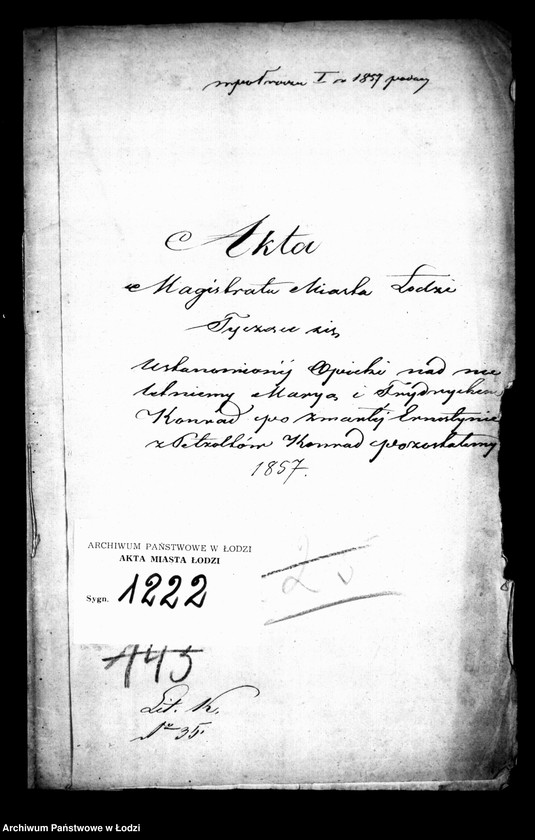 w półroczu I w 1857 podany
Akta
Magistratu Miasta Łodzi
Tyczące się
Ustanowionéj Opieki nad nie
letniemy Maryą i Frydrychem
Konrad po zmarłéj Ernestynie
z Petzoltów Konrad pozostałemy
1857.
ARCHIWUM PAŃSTWOWE W ŁODZI
AKTA MIASTA ŁODZI
Sygn. 1222
25
145
Lit. K.
No 35.
Archiwum Państwowe w Łodzi